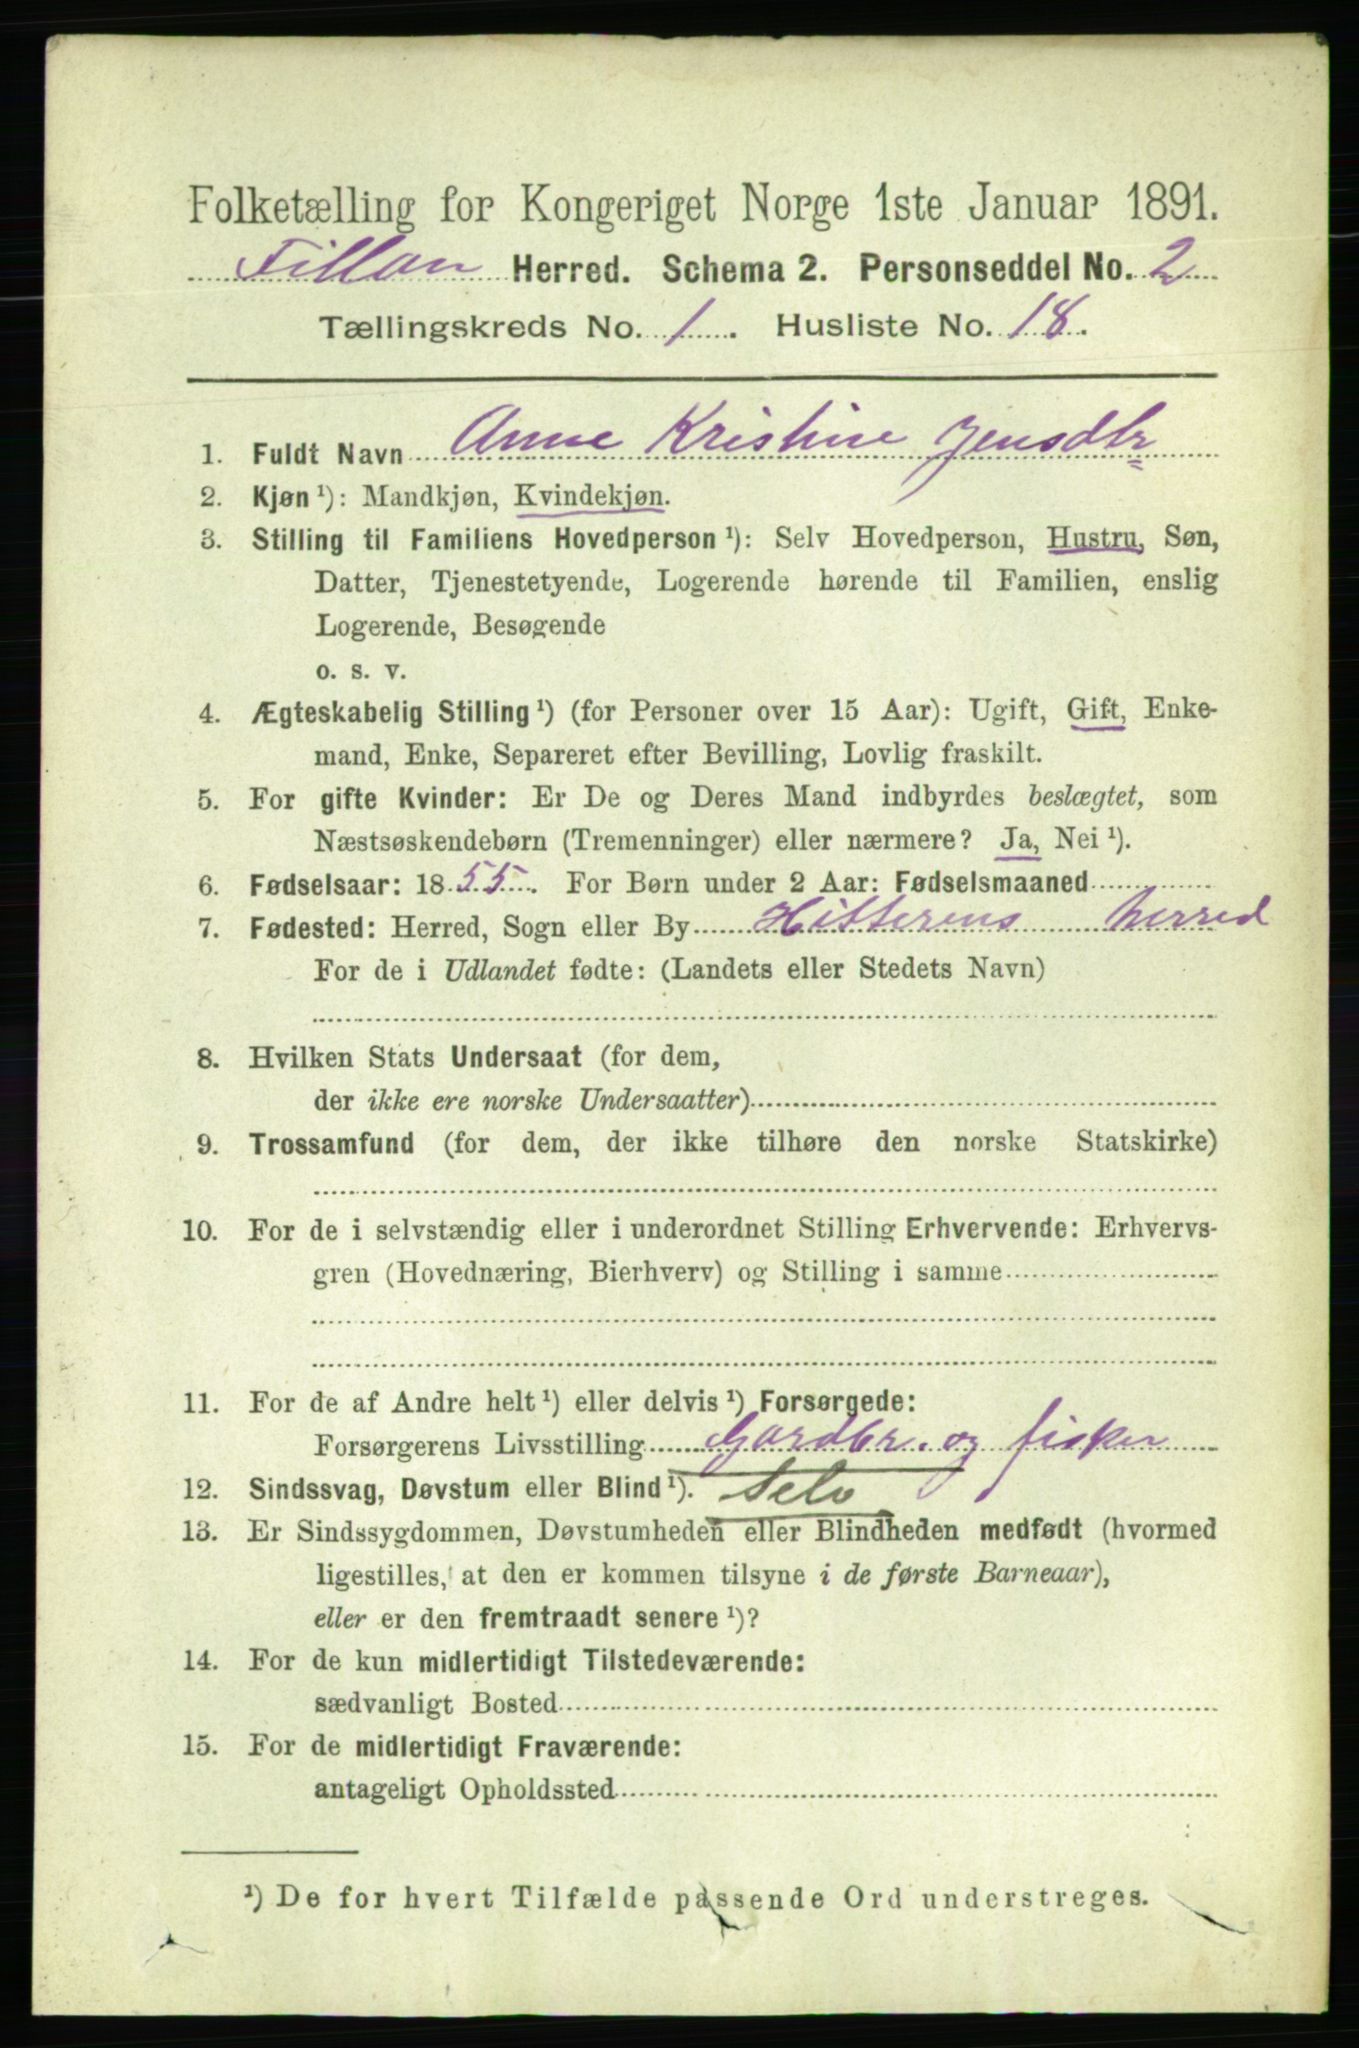 Folketælling for Kongeriget Norge 1ste Januar 1891.
Fillan Herred. Schema 2. Personseddel No. 2
Tællingskreds No. 1. Husliste No. 18.
1. Fuldt Navn Anne Kristine Jensdtr
2. Kjøn ¹): Mandkjøn, Kvindekjøn.
3. Stilling til Familiens Hovedperson ¹): Selv Hovedperson, Hustru, Søn,
Datter, Tjenestetyende, Logerende hørende til Familien, enslig
Logerende, Besøgende
o. s. v.
4. Ægteskabelig Stilling ¹) (for Personer over 15 Aar): Ugift, Gift, Enke-
mand, Enke, Separeret efter Bevilling, Lovlig fraskilt.
5. For gifte Kvinder: Er De og Deres Mand indbyrdes beslægtet, som
Næstsøskendebørn (Tremenninger) eller nærmere? Ja, Nei ¹).
6. Fødselsaar: 1855. For Børn under 2 Aar: Fødselsmaaned
7. Fødested: Herred, Sogn eller By Hitterens herred
For de i Udlandet fødte: (Landets eller Stedets Navn)
8. Hvilken Stats Undersaat (for dem,
der ikke ere norske Undersaatter)
9. Trossamfund (for dem, der ikke tilhøre den norske Statskirke)
10. For de i selvstændig eller i underordnet Stilling Erhvervende: Erhvervs-
gren (Hovednæring, Bierhverv) og Stilling i samme
11. For de af Andre helt ¹) eller delvis ¹) Forsørgede:
Forsørgerens Livsstilling Gardbr. og fisker
12. Sindssvag, Døvstum eller Blind ¹). Selv
13. Er Sindssygdommen, Døvstumheden eller Blindheden medfødt (hvormed
ligestilles, at den er kommen tilsyne i de første Barneaar),
eller er den fremtraadt senere ¹)?
14. For de kun midlertidigt Tilstedeværende:
sædvanligt Bosted
15. For de midlertidigt Fraværende:
antageligt Opholdssted
¹) De for hvert Tilfælde passende Ord understreges.